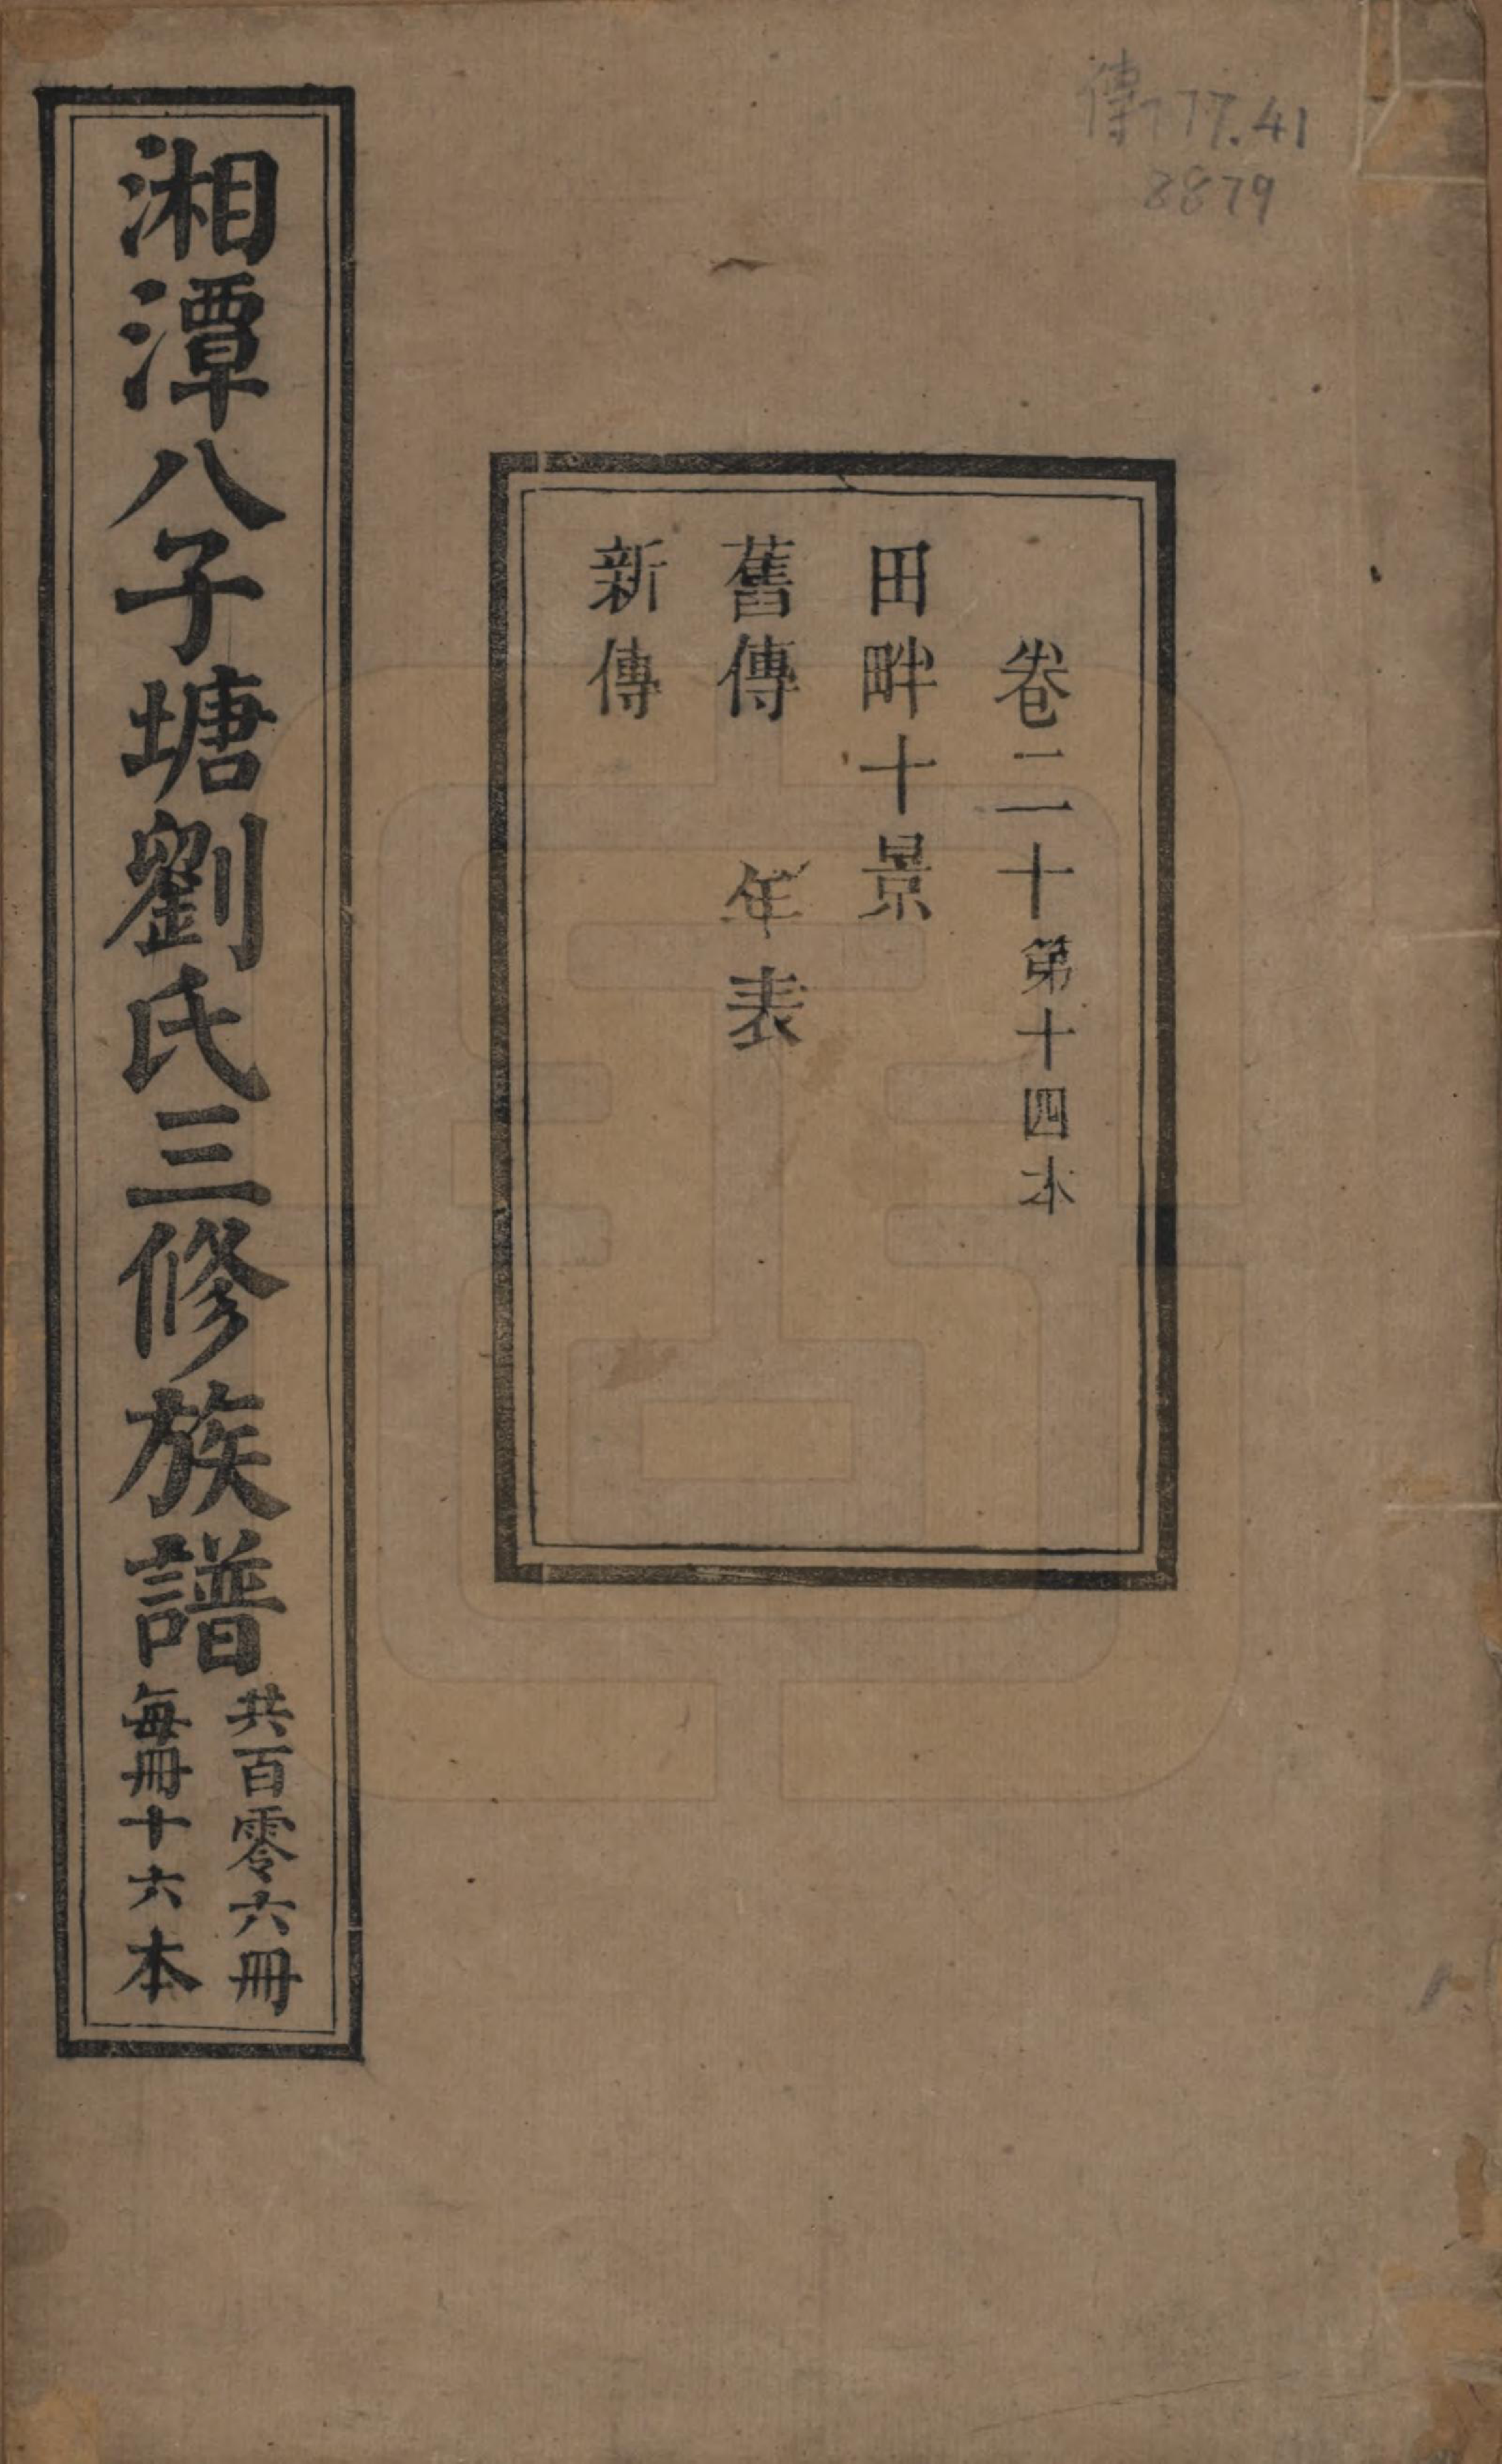 傳777.41
8879
卷二十第十四本
田畔十景
舊傳 年表
新傳
湘潭八子塘劉氏三修族譜
共百零六冊
每冊十六本